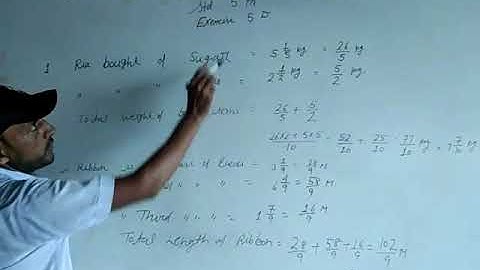 Std 5 M
Exercise 5 D
1 Ria bought of Sugar = 5 1/5 kg = 26/5 kg
" " " = 2 1/2 kg = 5/2 kg.
Total weight of = 26/5 + 5/2
= 52/10 + 25/10 = 77/10 kg = 7 7/10 kg
Ribbon = 3 1/9 = 28/9 M
" " " = 6 4/9 = 58/9 M
" Third " " " = 1 7/9 = 16/9 M
Total Length of Ribbon = 28/9 + 58/9 + 16/9 = 102/9 M